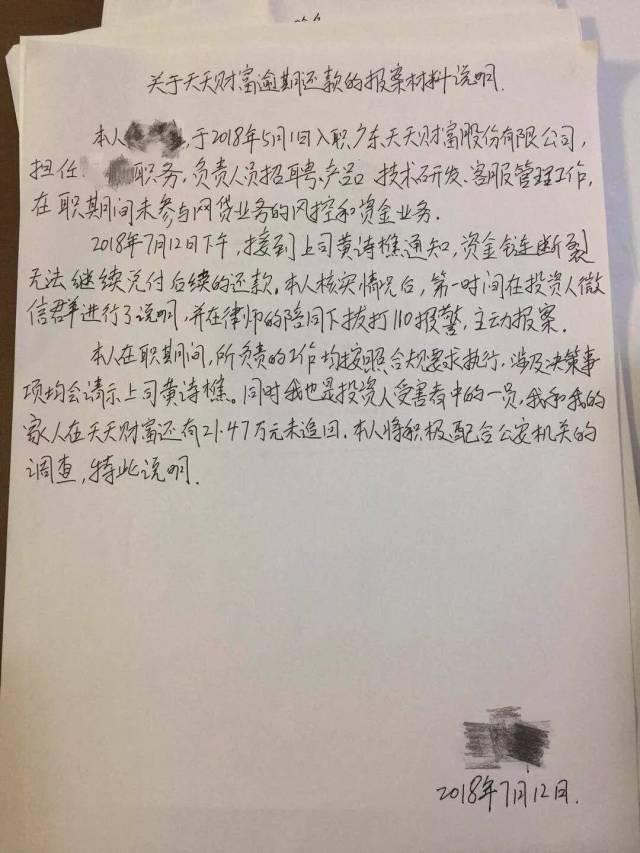 关于天天财富逾期还款的报案材料说明.
本人 , 于2018年5月1日入职广东天天财富股份有限公司,
担任 职务, 负责人员招聘、产品、技术研发、客服管理工作,
在职期间未参与网贷业务的风控和资金业务.
2018年7月12日下午, 接到上司黄诗樵通知, 资金链断裂
无法继续兑付后续的还款. 本人核实情况后, 第一时间在投资人微
信群进行了说明, 并在律师的陪同下拨打110报警, 主动报案.
本人在职期间, 所负责的工作均按照合规要求执行, 涉及决策事
项均会请示上司黄诗樵。同时我也是投资人受害者中的一员, 我和我的
家人在天天财富还有21.47万元未追回. 本人将积极配合公安机关的
调查, 特此说明.
2018年7月12日.